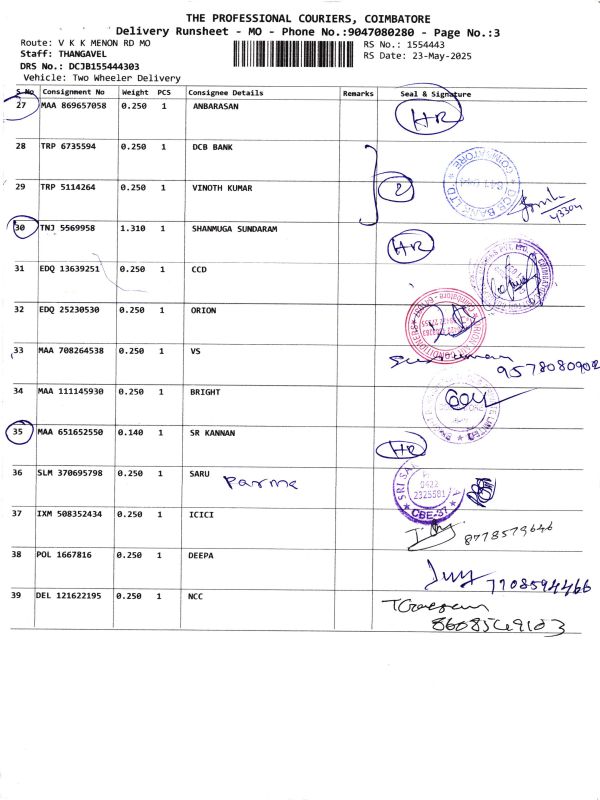 THE PROFESSIONAL COURIERS, COIMBATORE
Delivery Runsheet - MO - Phone No.:9047080280 - Page No.:3
Route: V K K MENON RD MO
RS No.: 1554443
Staff: THANGAVEL
RS Date: 23-May-2025
DRS No.: DCJB155444303
Vehicle: Two Wheeler Delivery
S No Consignment No Weight PCS Consignee Details Remarks Seal & Signature
27 MAA 869657058 0.250 1 ANBARASAN HR
28 TRP 6735594 0.250 1 DCB BANK
29 TRP 5114264 0.250 1 VINOTH KUMAR 2
DCB BANK LTD COIMBATORE
43304
30 TNJ 5569958 1.310 1 SHANMUGA SUNDARAM HR
31 EDQ 13639251 0.250 1 CCD
32 EDQ 25230530 0.250 1 ORION
33 MAA 708264538 0.250 1 VS
9578080902
34 MAA 111145930 0.250 1 BRIGHT
35 MAA 651652550 0.140 1 SR KANNAN HR
36 SLM 370695798 0.250 1 SARU Parma
SRI 0422 2325581 CBE-37
37 IXM 508352434 0.250 1 ICICI
8778579646
38 POL 1667816 0.250 1 DEEPA
7708594466
39 DEL 121622195 0.250 1 NCC